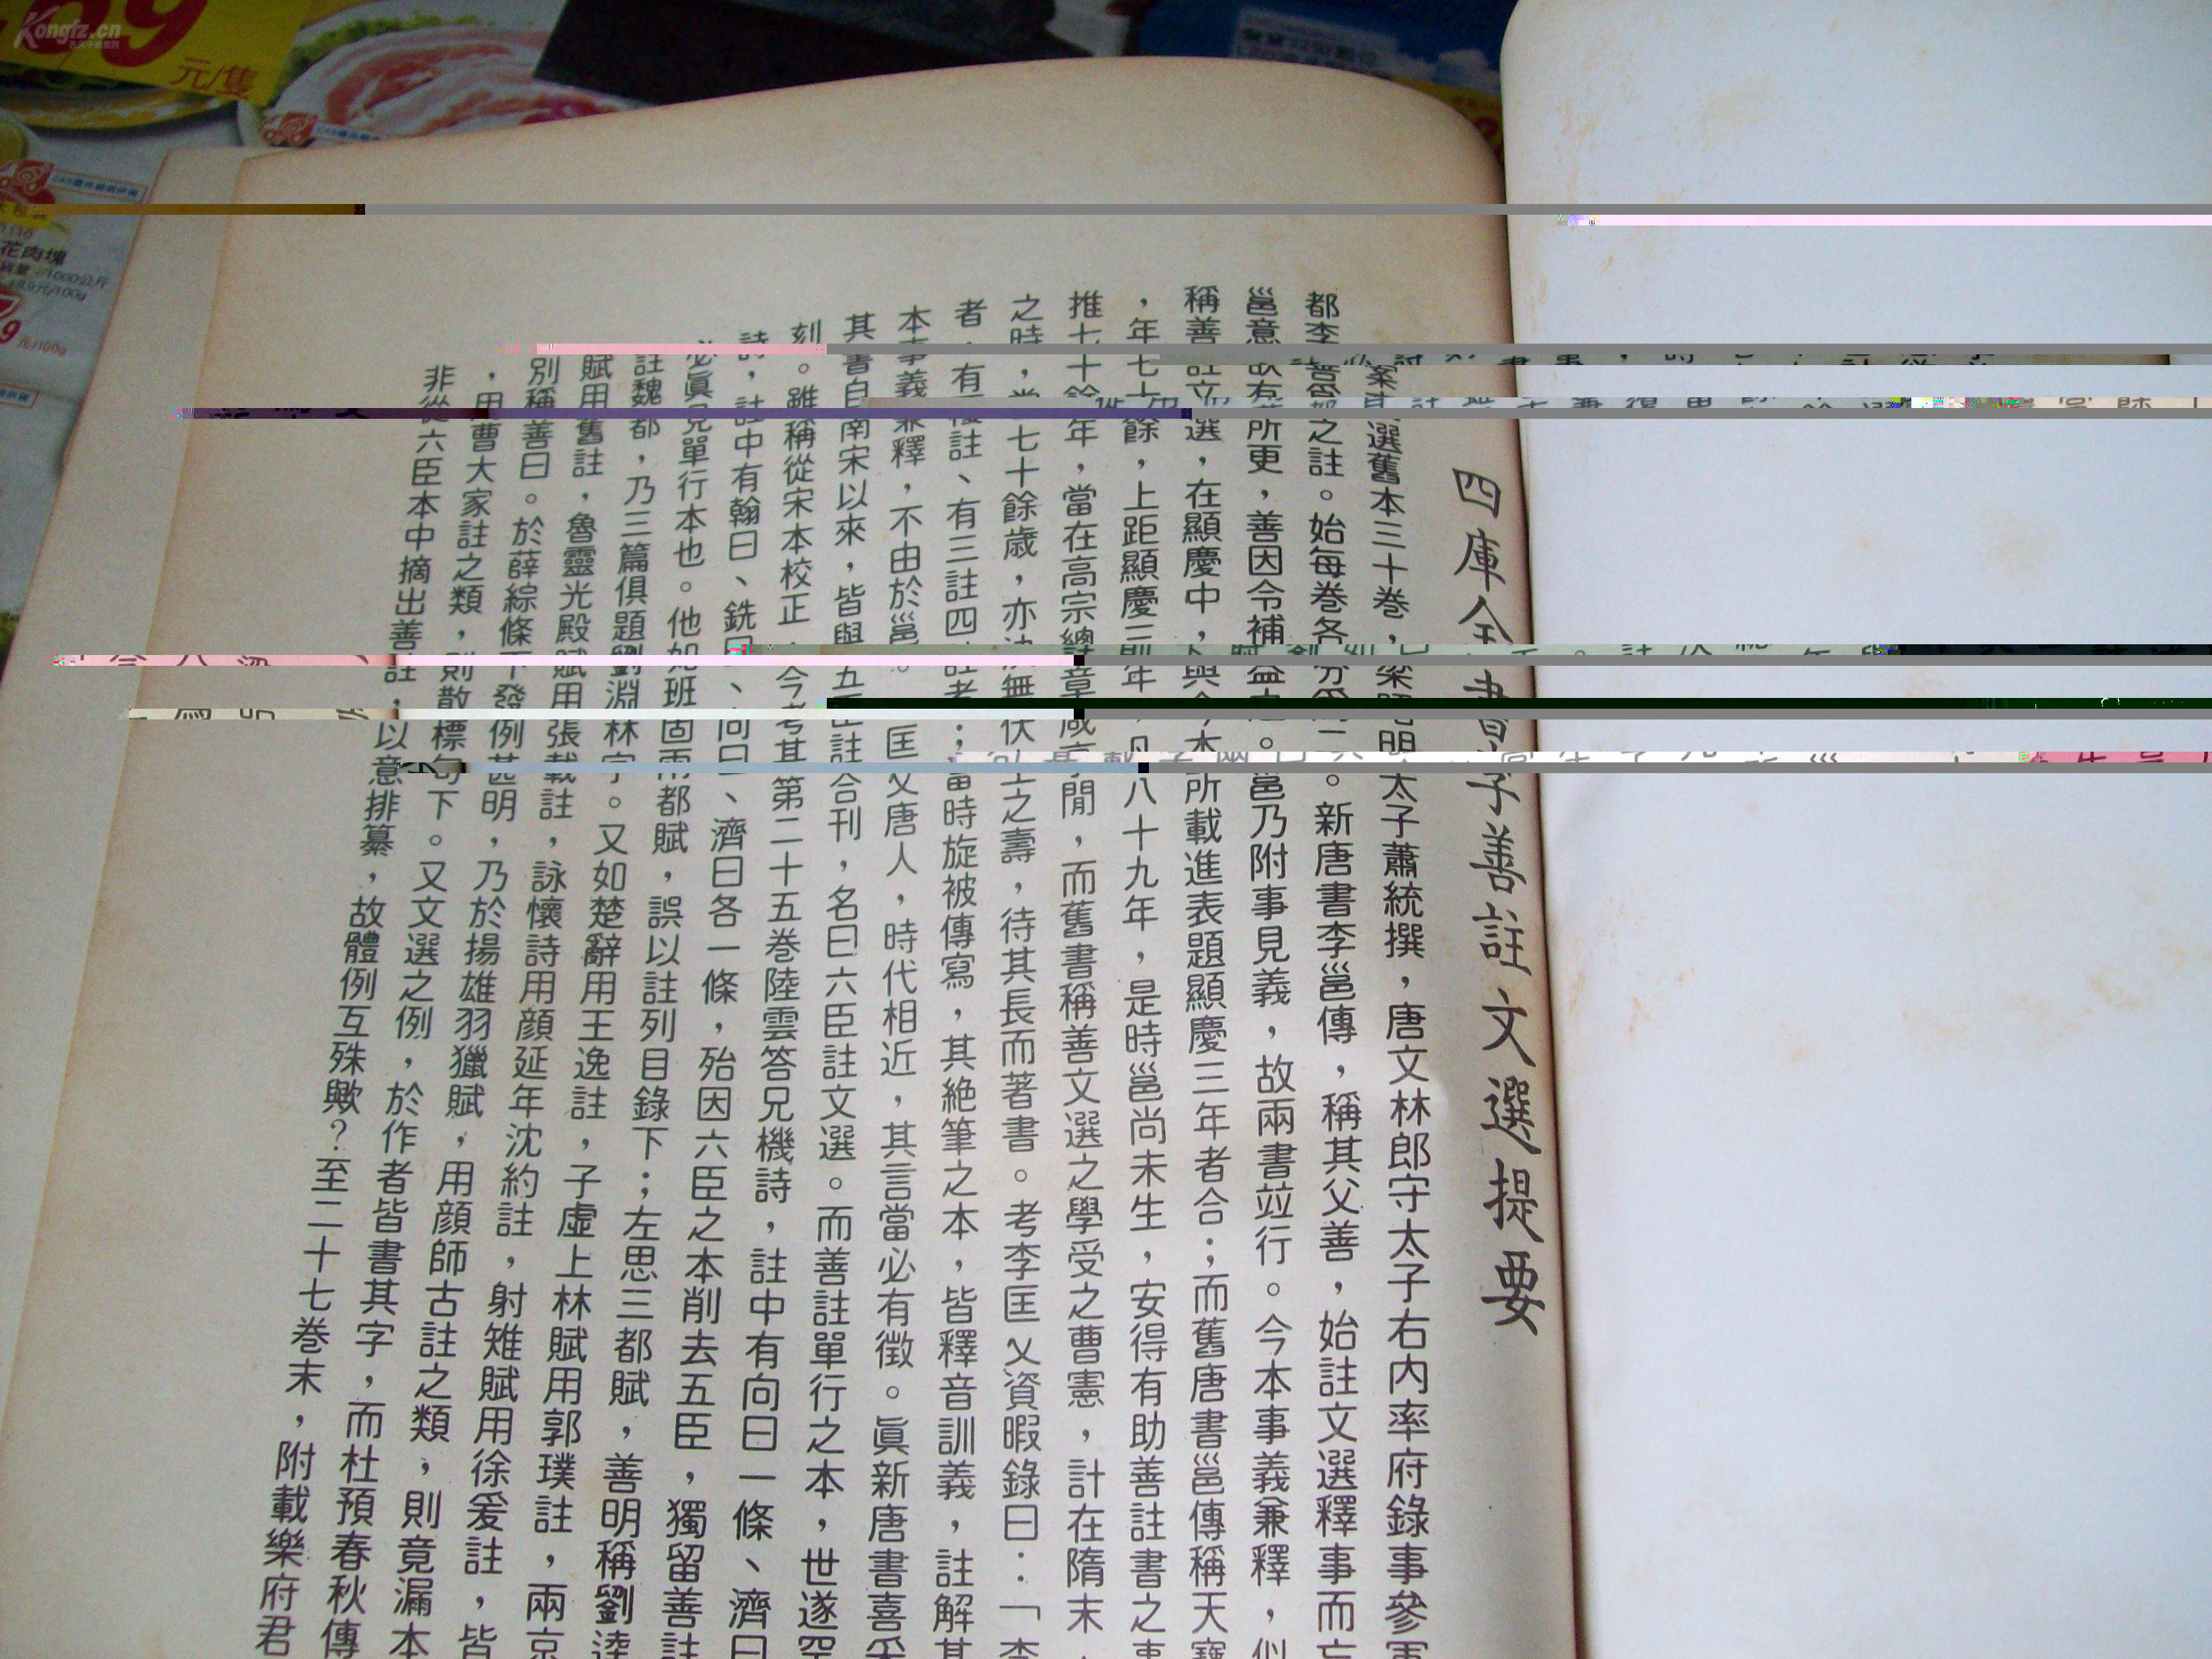 四庫全書李善註文選提要
案文選舊本三十卷，梁昭明太子蕭統撰，唐文林郎守太子右內率府錄事參軍
都李善為之註。始每卷各分為二。新唐書李邕傳，稱其父善，始註文選釋事而忘
邕意欲有所更，善因令補益之。邕乃附事見義，故兩書竝行。今本事義兼釋，似
稱善註文選，在顯慶中，與今本所載進表題顯慶三年者合；而舊唐書邕傳稱天寶
，年七十餘，上距顯慶三年，凡八十九年，是時邕尚未生，安得有助善註書之事
推七十餘年，當在高宗總章咸亨閒，而舊書稱善文選之學受之曹憲，計在隋末，
之時，當七十餘歲，亦決無伏生之壽，待其長而著書。考李匡乂資暇錄曰：「李
者，有覆註、有三註四註者；當時旋被傳寫，其絕筆之本，皆釋音訓義，註解甚
本事義兼釋，不由於邕。匡乂唐人，時代相近，其言當必有徵。眞新唐書喜采
其書自南宋以來，皆與五臣註合刊，名曰六臣註文選。而善註單行之本，世遂罕
刻。雖稱從宋本校正，今考其第二十五卷陸雲答兄機詩，註中有向曰一條、濟曰
詩，註中有翰曰、銑曰、向曰、濟曰各一條，殆因六臣之本削去五臣，獨留善註
必眞見單行本也。他如班固兩都賦，誤以註列目錄下；左思三都賦，善明稱劉逵
註魏都，乃三篇俱題劉淵林字。又如楚辭用王逸註，子虛上林賦用郭璞註，兩京
賦用舊註，魯靈光殿賦用張載註，詠懷詩用顏延年沈約註，射雉賦用徐爰註，皆
別稱善曰。於薛綜條下發例甚明，乃於揚雄羽獵賦，用顏師古註之類，則竟漏本
，用曹大家註之類，則散標句下。又文選之例，於作者皆書其字，而杜預春秋傳
非從六臣本中摘出善註，以意排纂，故體例互殊歟？至二十七卷末，附載樂府君
Kongfz.cn
元/隻
花肉塊
元/100g